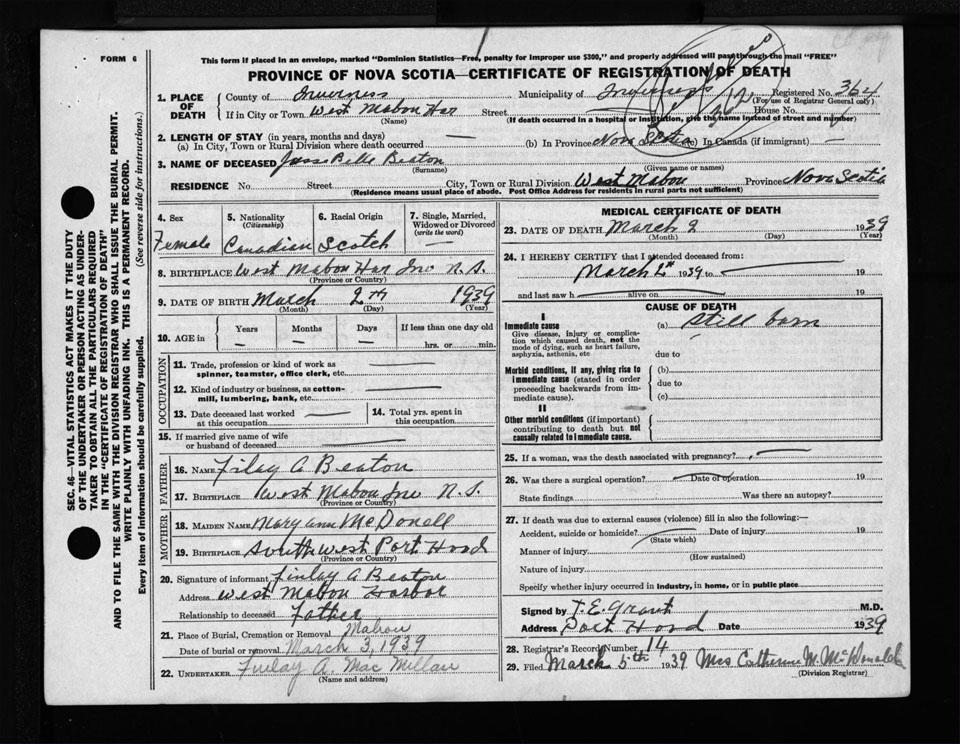 FORM 6
This form if placed in an envelope, marked "Dominion Statistics—Free, penalty for improper use $300," and properly addressed will pass through the mail "FREE"
PROVINCE OF NOVA SCOTIA—CERTIFICATE OF REGISTRATION OF DEATH
1. PLACE OF DEATH
County of Inverness Municipality of Inverness Registered No. 364
(For use of Registrar General only)
If in City or Town West Mabou Har Street House No.
(Name) (If death occurred in a hospital or institution, give the name instead of street and number)
2. LENGTH OF STAY (in years, months and days)
(a) In City, Town or Rural Division where death occurred — (b) In Province Nova Scotia (c) In Canada (if immigrant) —
3. NAME OF DECEASED Jessie Belle Beaton
(Surname) (Given name or names)
RESIDENCE No. Street City, Town or Rural Division West Mabou Province Nova Scotia
(Residence means usual place of abode. Post Office Address for residents in rural parts not sufficient)
4. Sex Female
5. Nationality (Citizenship) Canadian
6. Racial Origin Scotch
7. Single, Married, Widowed or Divorced (write the word) —
8. BIRTHPLACE West Mabou Har Inv N.S.
(Province or Country)
9. DATE OF BIRTH March 2nd 1939
(Month) (Day) (Year)
10. AGE in Years — Months — Days — If less than one day old hrs. or min.
OCCUPATION
11. Trade, profession or kind of work as spinner, teamster, office clerk, etc. —
12. Kind of industry or business, as cotton-mill, lumbering, bank, etc. —
13. Date deceased last worked at this occupation —
14. Total yrs. spent in this occupation
15. If married give name of wife or husband of deceased —
FATHER
16. NAME Filay A Beaton
17. BIRTHPLACE West Mabou Inv N.S.
(Province or Country)
MOTHER
18. MAIDEN NAME Mary Ann McDonell
19. BIRTHPLACE Southwest Port Hood
(Province or Country)
20. Signature of informant Finlay A Beaton
Address West Mabou Harbor
Relationship to deceased Father
21. Place of Burial, Cremation or Removal Mabou
Date of burial or removal March 3, 1939
22. UNDERTAKER Finlay A. MacMillan
(Name and address)
MEDICAL CERTIFICATE OF DEATH
23. DATE OF DEATH March 2 1939
(Month) (Day) (Year)
24. I HEREBY CERTIFY that I attended deceased from:
March 2nd 1939 to — 19
and last saw h alive on 19
CAUSE OF DEATH
I
Immediate cause
Give disease, injury or complication which caused death, not the mode of dying, such as heart failure, asphyxia, asthenia, etc
(a) Still born
due to
Morbid conditions, if any, giving rise to immediate cause (stated in order proceeding backwards from immediate cause).
(b)
due to
(c)
II
Other morbid conditions (if important) contributing to death but not causally related to immediate cause.
25. If a woman, was the death associated with pregnancy? —
26. Was there a surgical operation? — Date of operation 19
State findings Was there an autopsy?
27. If death was due to external causes (violence) fill in also the following:—
Accident, suicide or homicide? Date of injury 19
(State which)
Manner of injury
(How sustained)
Nature of injury
Specify whether injury occurred in industry, in home, or in public place
Signed by T. E. Grant M.D.
Address Port Hood Date 1939
28. Registrar's Record Number 14
29. Filed March 5th 1939 Mrs Catherine M. McDonald
(Division Registrar)
SEC. 46—VITAL STATISTICS ACT MAKES IT THE DUTY
OF THE UNDERTAKER OR PERSON ACTING AS UNDER-
TAKER TO OBTAIN ALL THE PARTICULARS REQUIRED
IN THE "CERTIFICATE OF REGISTRATION OF DEATH"
AND TO FILE THE SAME WITH THE DIVISION REGISTRAR WHO SHALL ISSUE THE BURIAL PERMIT.
WRITE PLAINLY WITH UNFADING INK. THIS IS A PERMANENT RECORD.
Every item of Information should be carefully supplied. (See reverse side for instructions.)